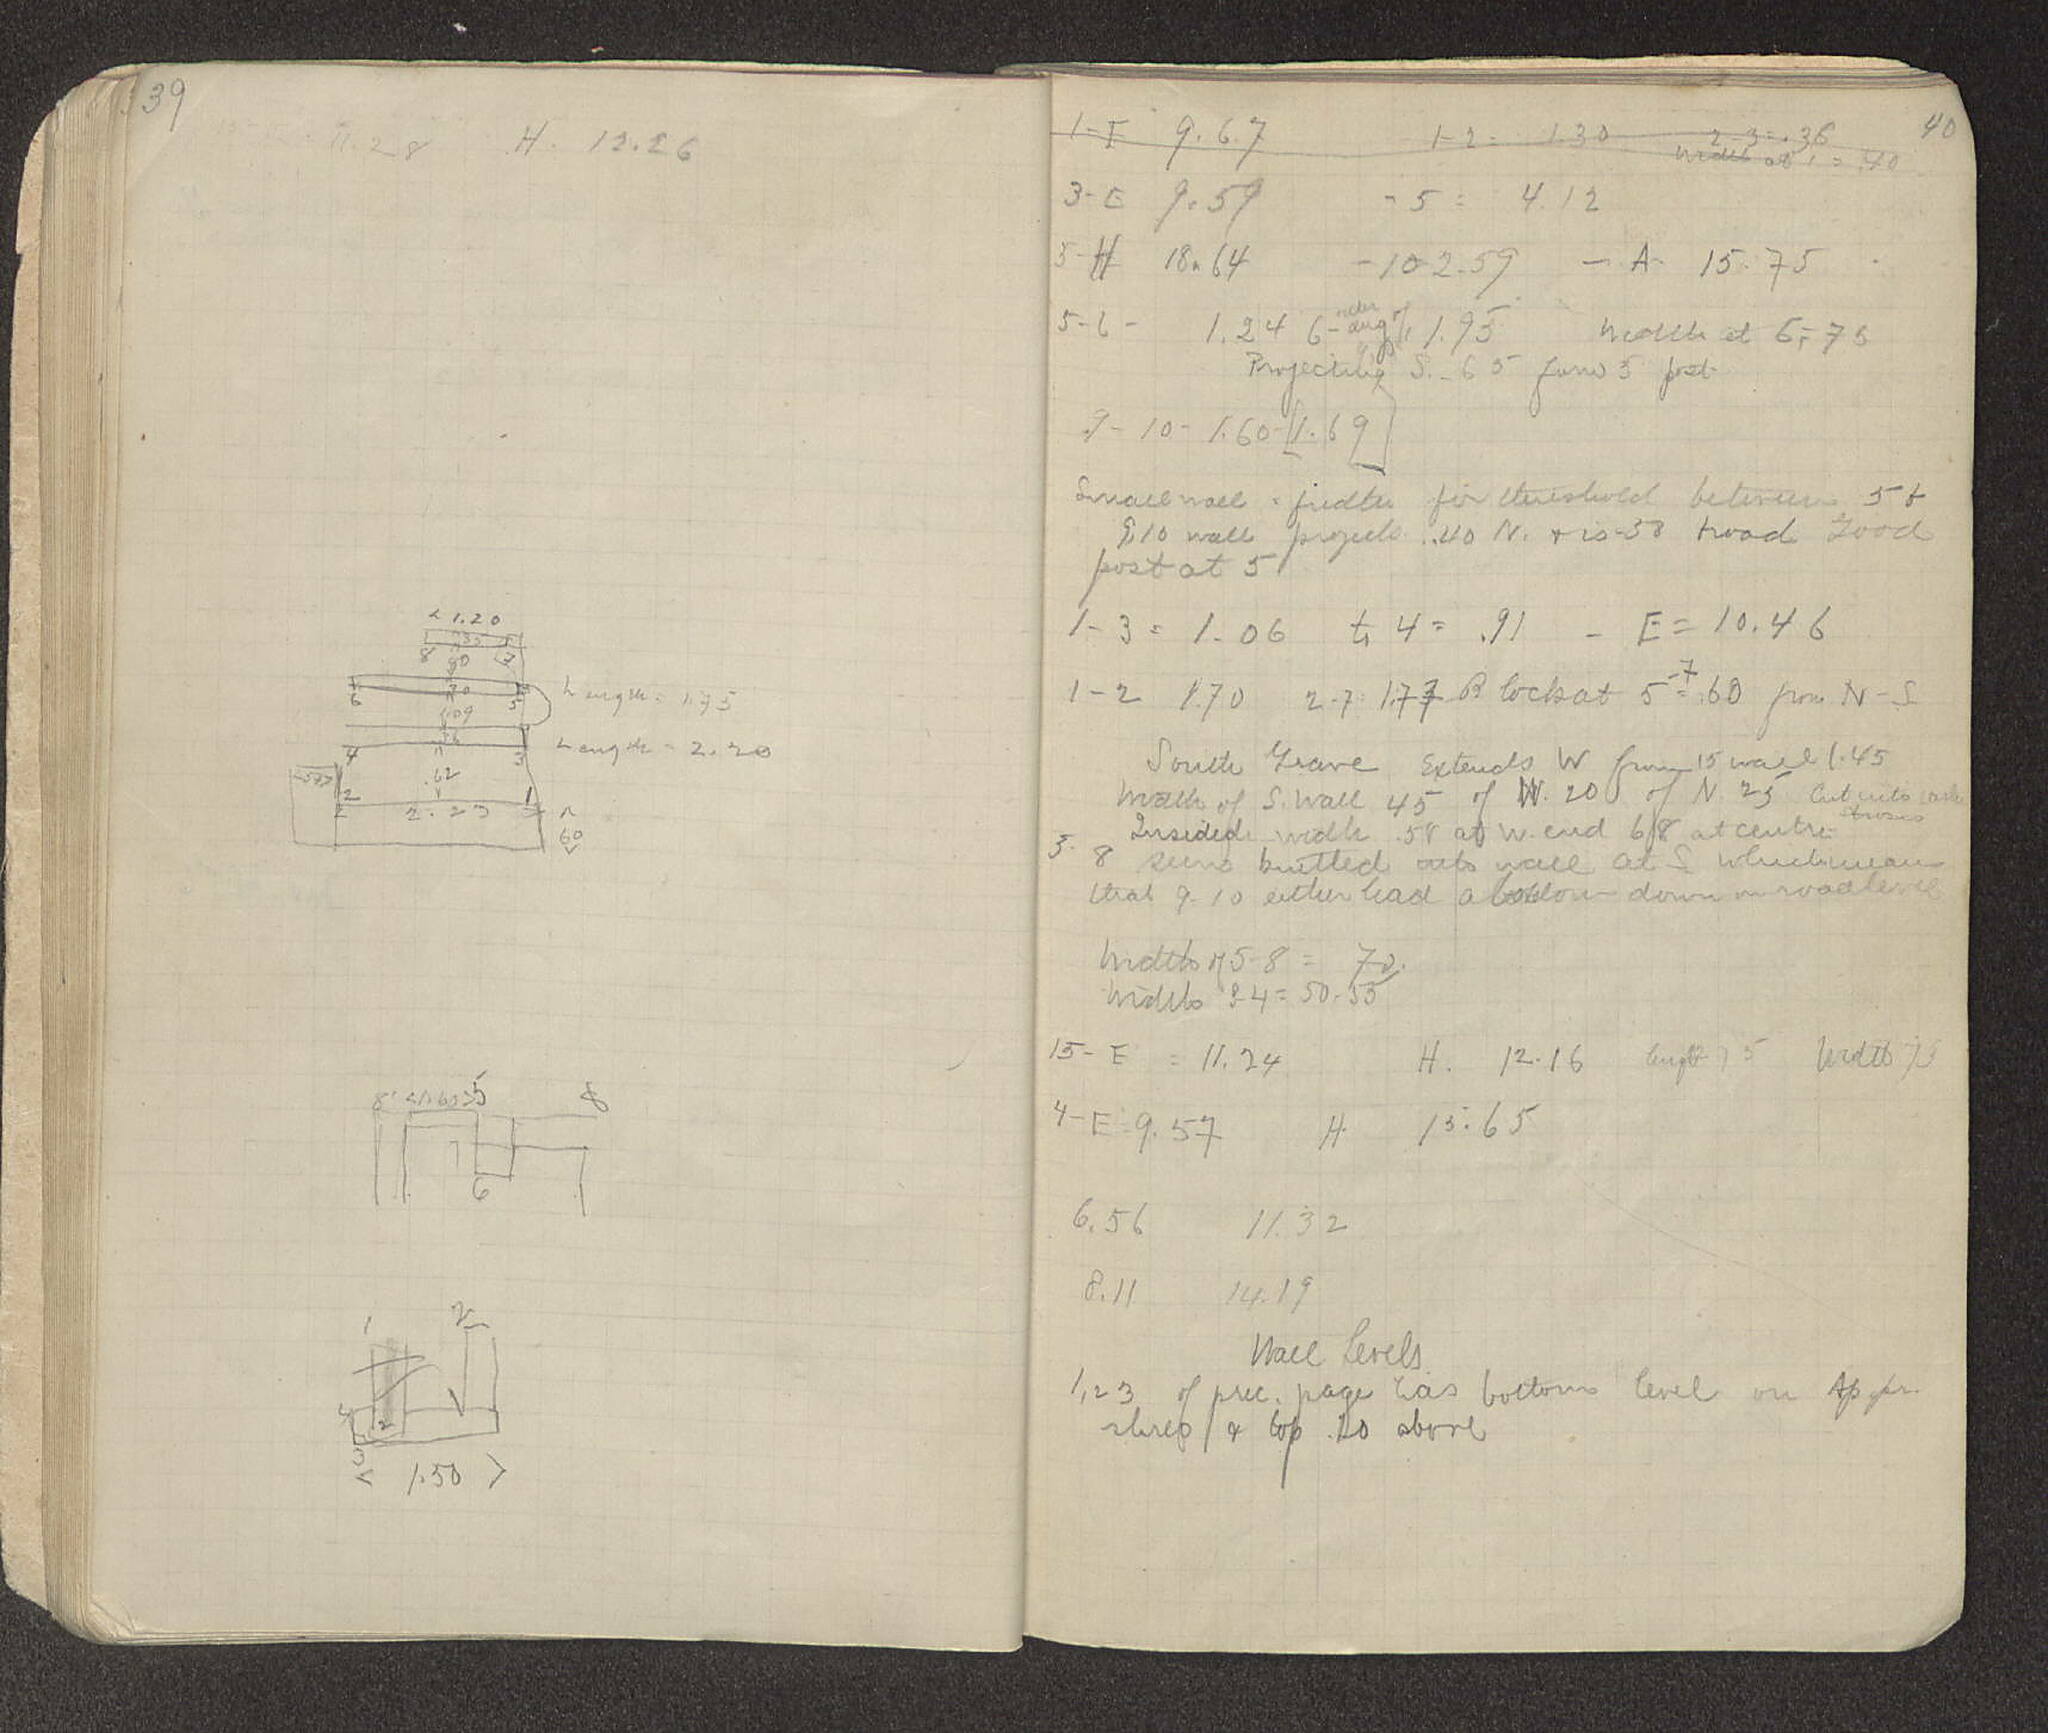 39
11.28 H. 12.26
< 1.20
8 7
80
6 70 5 Length = 1.75
1.09
4 3 Length = 2.20
.62
2 1
2.23
60
8 <1.60> 5 8
7
6
1 2
4 2
3
< 1.50 >
40
1-E 9.67 1-2 = 1.30 2-3 = .36
Width at 1 = .40
3-E 9.59 - 5 = 4.12
5-H 18.64 - 10 2.59 - A- 15.75
5-6 - 1.24 6- ang of 1.95 Width at 6 = 75
Projecting S. .65 from 5 post
9-10 - 1.60 - [1.69]
Small wall = for threshold between 5 +
9,10 wall projects .40 N. + is .38 broad Good
post at 5
1-3 = 1.06 to 4 = .91 - E = 10.46
1-2 1.70 2-7 1.77 Block at 5-7 = .60 from N-S
South Grave Extends W from 15 wall 1.45
Width of S. Wall 45 of W. 20 of N. 25 Cut into
Inside width .58 at W. end 68 at centre
8 seems butted onto wall at S which mean
that 9-10 either had a bottom down on road level
Width of 5-8 = 70.
Width 3-4 = 50-55
15-E = 11.24 H. 12.16 length 75 Width 75
4-E = 9.57 H 13.65
6.56 11.32
8.11 14.19
Wall Levels
1,2 3 of prec. page has bottom level on
& top .20 above